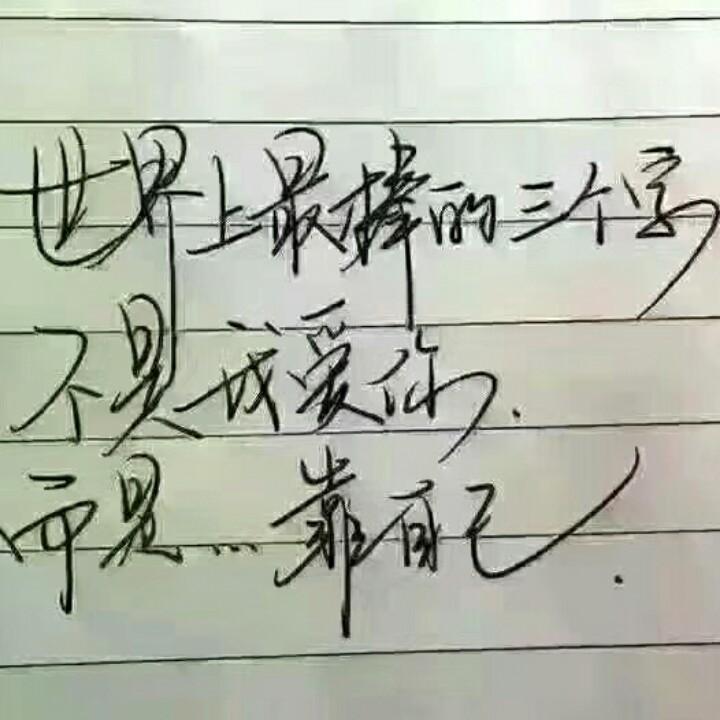 世界上最棒的三个字
不是我爱你.
而是...靠自己.